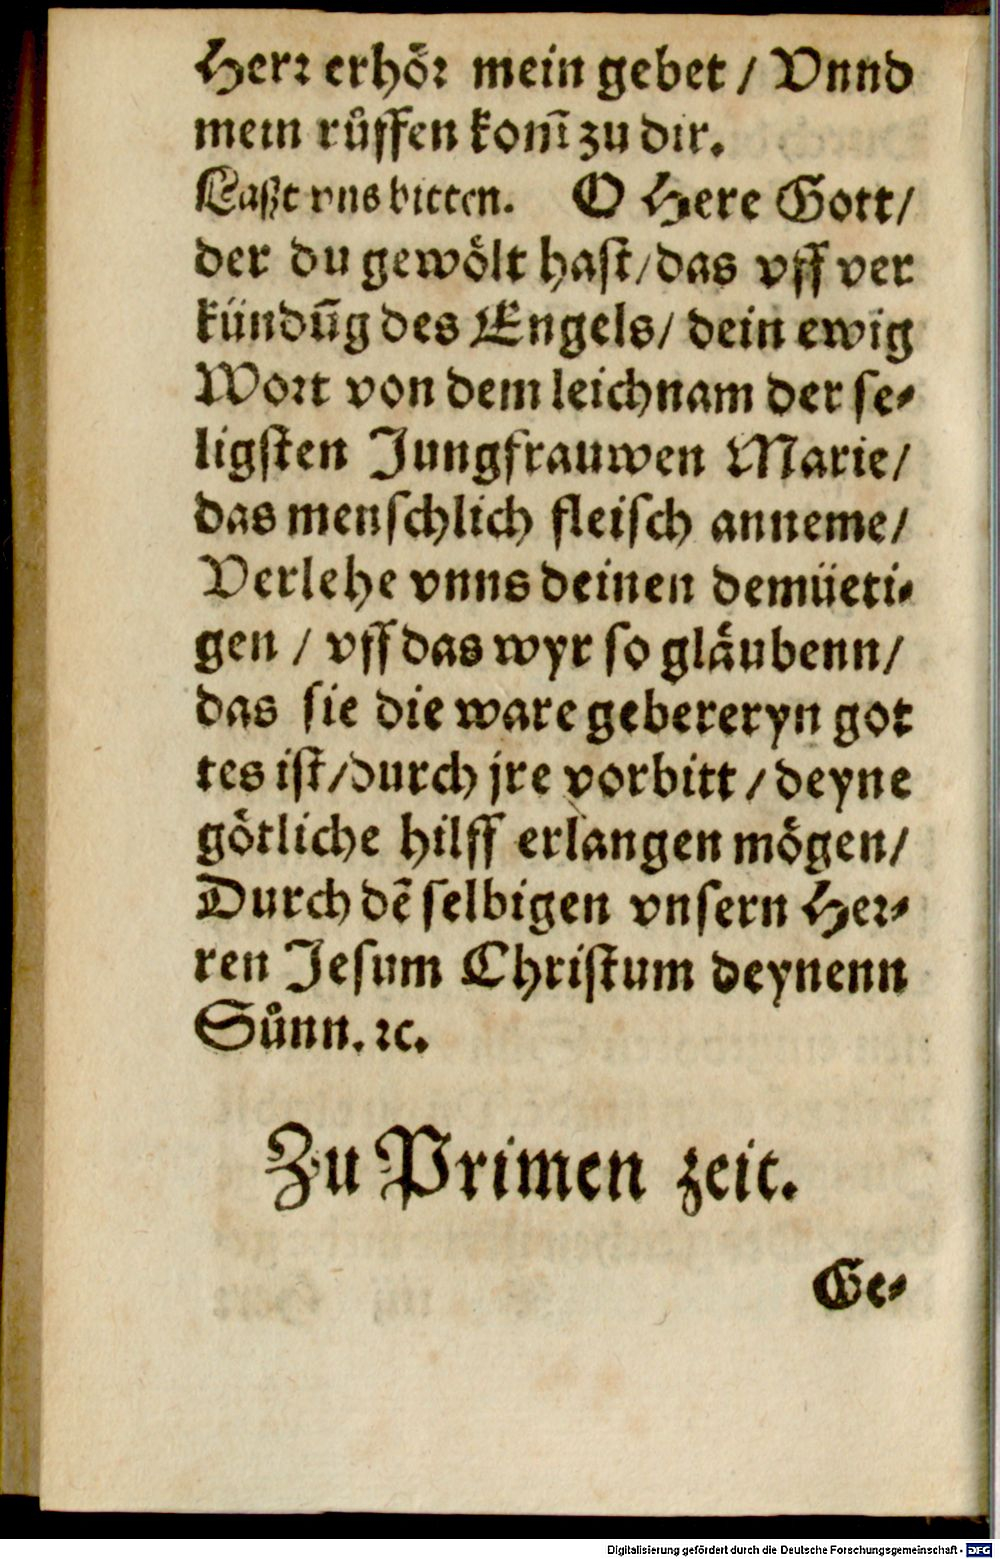 Herꝛ erhoͤꝛ mein gebet / Vnnd
mein ruͦffen kom̄ zu dir.
Laſʒt vns bitten. O Here Gott/
der du gewoͤlt haſt/das vff ver
kündūg des Engels/ dein ewig
Woꝛt von dem leichnam der ſe⸗
ligſten Jungfrauwen Marie/
das menſchlich fleiſch anneme/
Verlehe vnns deinen demüeti⸗
gen / vff das wyr ſo glaͤubenn/
das ſie die ware gebereryn got
tes iſt/durch jre vorbitt / deyne
goͤtliche hilff erlangen moͤgen/
Durch dē ſelbigen vnſern Heꝛ⸗
ren Jeſum Chriſtum deynenn
Suͦnn. ꝛc.
Zu Primen zeit.
Ge⸗
Digitalisierung gefördert durch die Deutsche Forschungsgemeinschaft - DFG